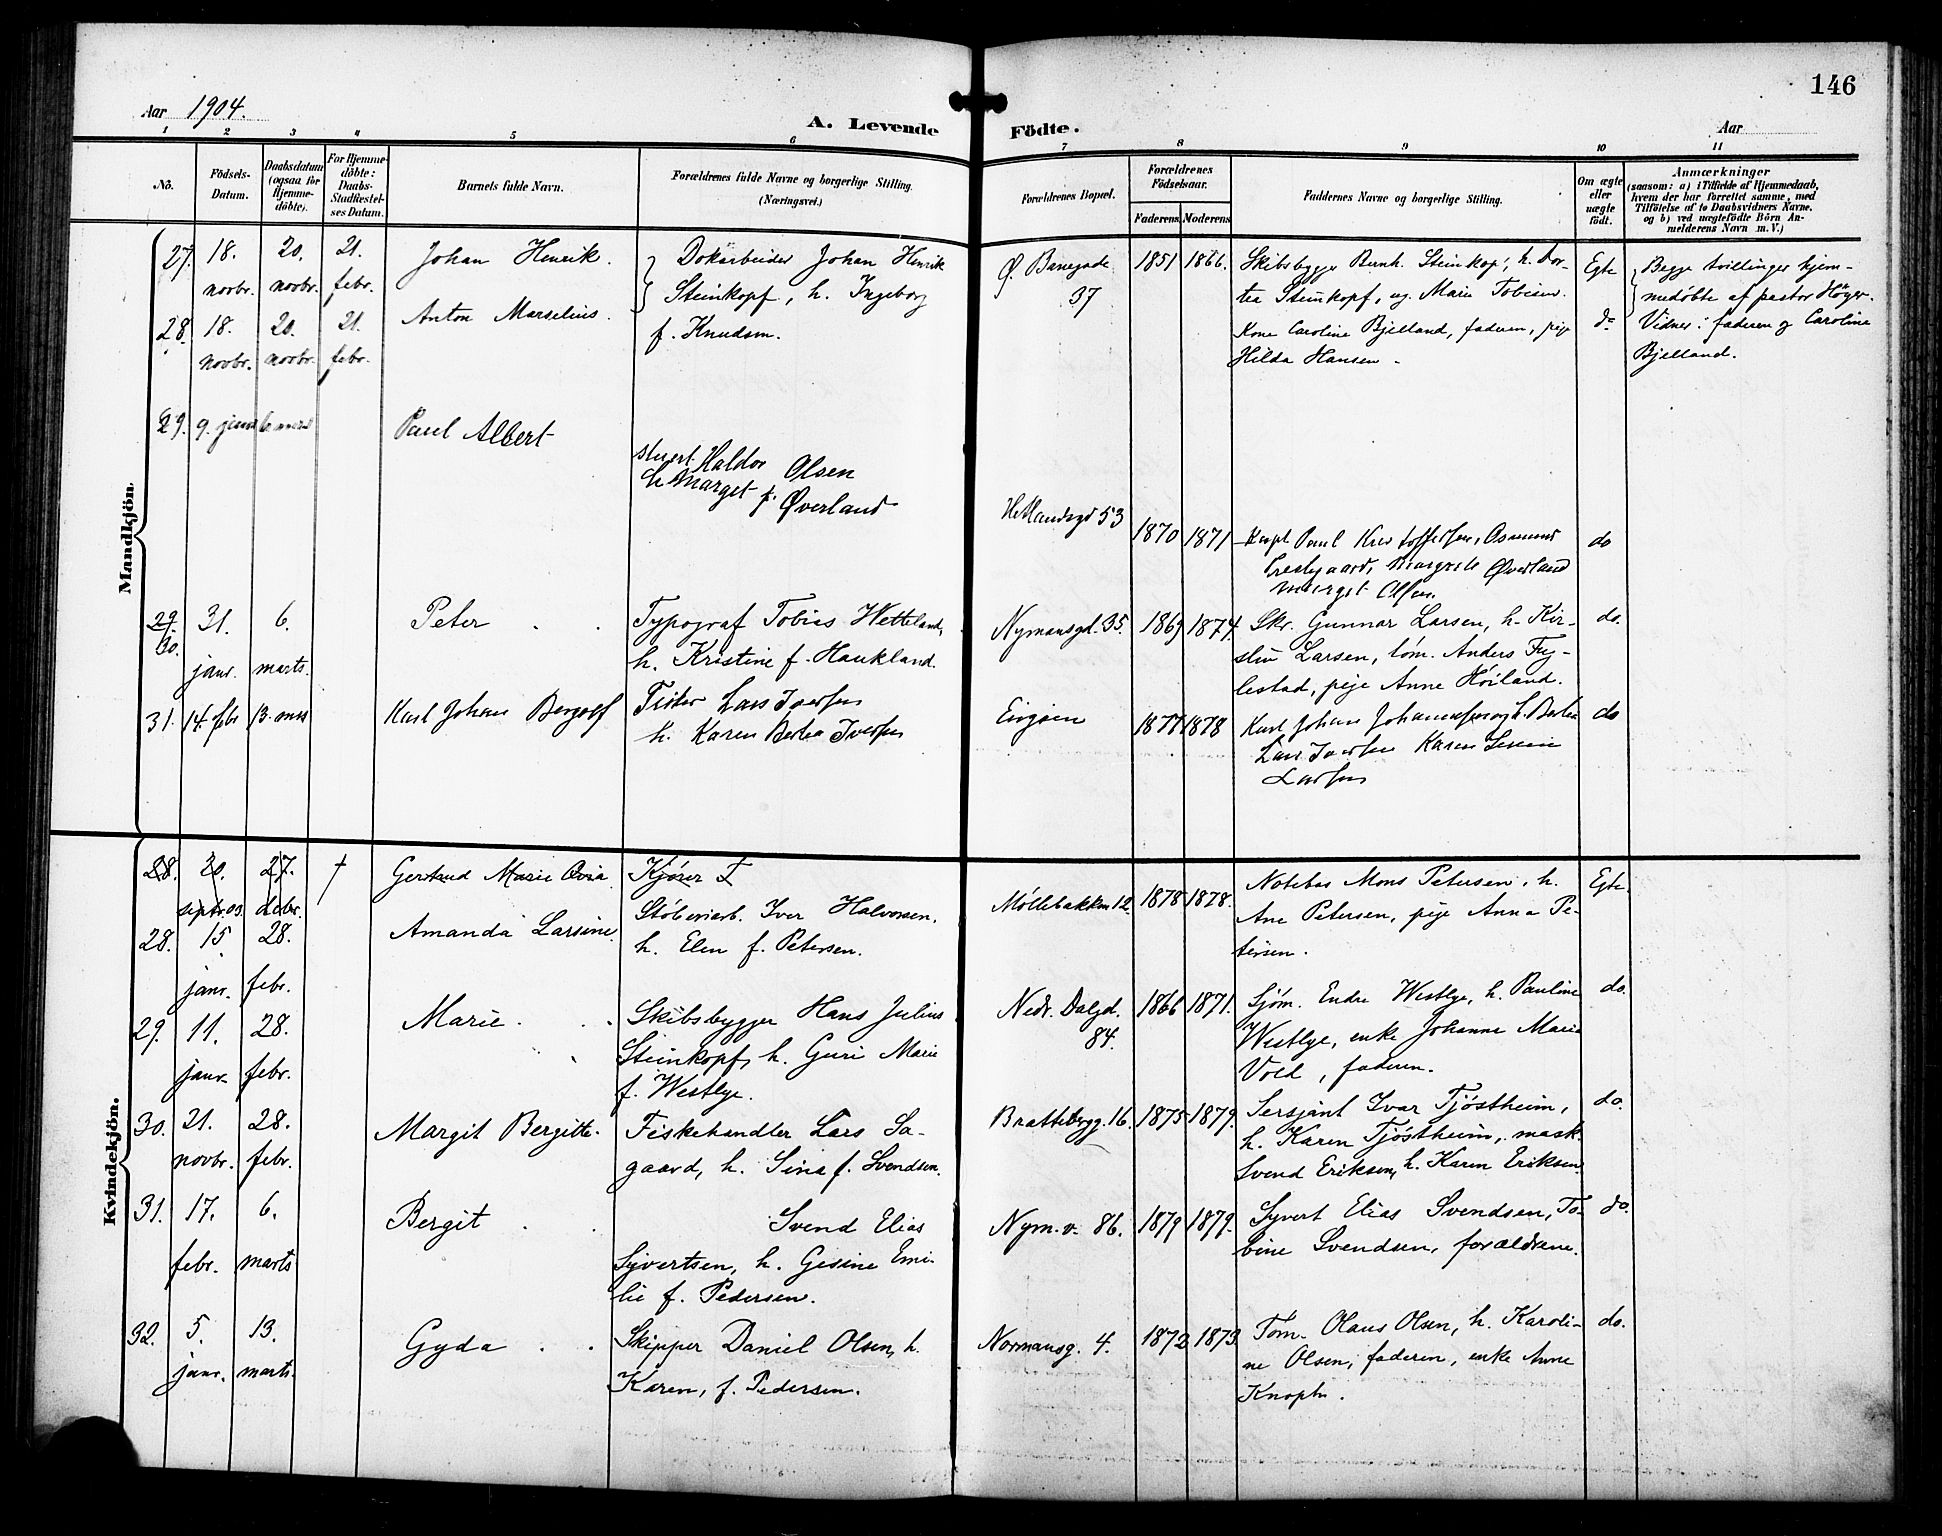 146
Aar 1904.
A. Levende Födte.
Aar
1 2 3 4 5 6 7 8 9 10 11
Nö.
Födsels-
Datum.
Daabsdatum
(ogsaa for
Hjemme-
döbte).
For Hjemme-
döbte:
Daabs-
Stadfæstel-
ses Datum.
Barnets fulde Navn.
Forældrenes fulde Navne og borgerlige Stilling.
(Næringsvei.)
Forældrenes Bopæl.
Forældrenes
Födselsaar.
Faderens Moderens
Faddernes Navne og borgerlige Stilling.
Om ægte
eller
uægte
født.
Anmærkninger
(saasom: a) i Tilfælde af Hjemmedaab,
hvem der har forrettet samme, med
Tilföielse af to Daabsvidners Navne,
og b) ved uægtefödte Börn An-
melderens Navn m. V.)
Mandkjön.
27. 18. novbr. 20. novbr. 21. febr.
Johan Henrik.
28. 18. novbr. 20. novbr. 21. febr.
Anton Marselius.
Dokarbeider Johan Henrik
Steinkopf, h. Ingeborg
f. Knudsen.
Ø. Banegade
37
1851 1866.
Skibsbygge Bernh. Steinkop, h. Dor-
tea Steinkopf, ug. Marie Tobisen.
Kone Caroline Bjelland, faderen, pige
Hilda Hansen
Egte
do
Begge tvillinger hjem-
medöbte af pastor Höyer.
Vidner: faderen og Carolina
Bjelland.
29. 9. janr 6 mars
Paul Albert
stuert Haldor Olsen
h Marget f. Øverland
Hetlandsgd 53
1870 1871
Kapt Paul Kristoffersen, Osmund
Øverland
Marget Olsen.
do
29. 30. 31. janr. 6. marts.
Peter
Typograf Tobias Wetteland,
h. Kristine f. Haukland.
Nymansgd. 35.
1869 1874.
Skr. Gunnar Larsen, h. Kir-
stin Larsen, tøm. Anders Fug-
lestad, pige Anne Høiland.
do.
31. 14. febr 13. mrs
Karl Johan Bergolf
Fisker Lars Iversen
h. Karen Berthea Iversen
Engøen
1877 1878
Karl Johan Johannesen og h. Berthea
Lars Iversen Karen
Larsen
do
Kvindekjön.
28. 20. septr. 03 27. debr. †
Gertrud Marie Ovia
Kjører T
28. 15 janr. 28. febr.
Amanda Larsine.
Støberiarb. Iver Halvorsen,
h. Elen f. Petersen.
Møllebakken 12.
1878 1878.
Notebas Mons Petersen, h.
Ane Petersen, pige Anna Pe-
tersen.
Egte.
29. 11. janr. 28. febr.
Marie.
Skibsbygger Hans Julius
Steinkopf, h. Guri Marie
f. Westlye.
Nedr. Dalgd.
84.
1866 1871.
Sjöm. Endre Westlye, h. Pauline
Westlye, enke Johanne Marie
Vold, faderen.
do.
30. 21. novbr. 28. febr.
Margit Bergitte.
Fiskehandler Lars Sa-
gaard, h. Sina f. Svendsen.
Brattebrygg. 16.
1875 1879.
Sersjant Ivar Tjöstheim,
h. Karen Tjöstheim, mask.
Svend Eriksen, h. Karen Eriksen
do.
31. 17. febr. 6. marts
Bergit
Svend Elias
Syvertsen, h. Gesine Emi-
lie f. Pedersen.
Nym. v. 86.
1879 1879.
Syvert Elias Svendsen, To-
bine Svendsen, forældrene.
do.
32. 5. janr. 13. marts.
Gyda
Skipper Daniel Olsen, h.
Karen, f. Pedersen.
Normansg. 4.
1872 1873
Tøm. Olaus Olsen, h. Karoli-
ne Olsen, faderen, enke Anne
Knoph.
do.